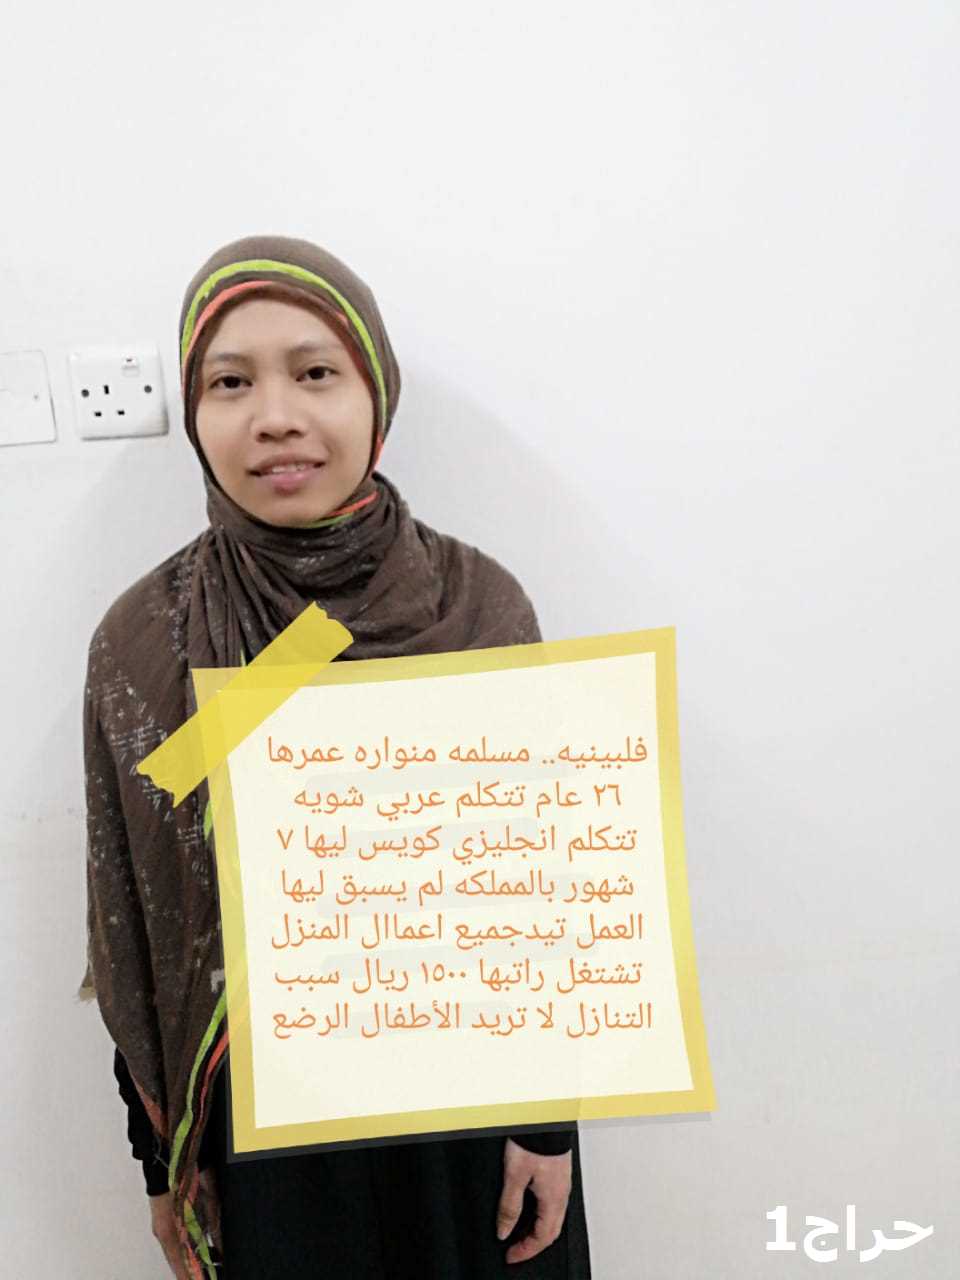 فلبينيه.. مسلمه منواره عمرها
٢٦ عام تتكلم عربي شويه
تتكلم انجليزي كويس ليها ٧
شهور بالمملكه لم يسبق ليها
العمل تيدجميع اعماال المنزل
تشتغل راتبها ١٥٠٠ ريال سبب
التنازل لا تريد الأطفال الرضع
حراج1